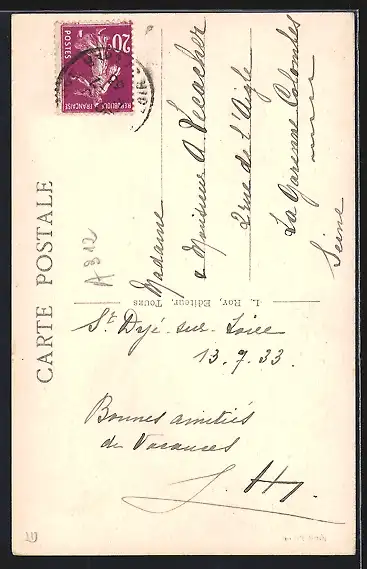 CARTE POSTALE
A 312
20c
POSTES
REPUBLIQUE FRANÇAISE
Madame
& Monsieur A Lecacher
2 rue de l'Aigle
La Garenne Colombes
Seine
L. Roy, Editeur, Tours
St Dyé-sur-Loire
13.9.33.
Bonnes amitiés
de Vacances